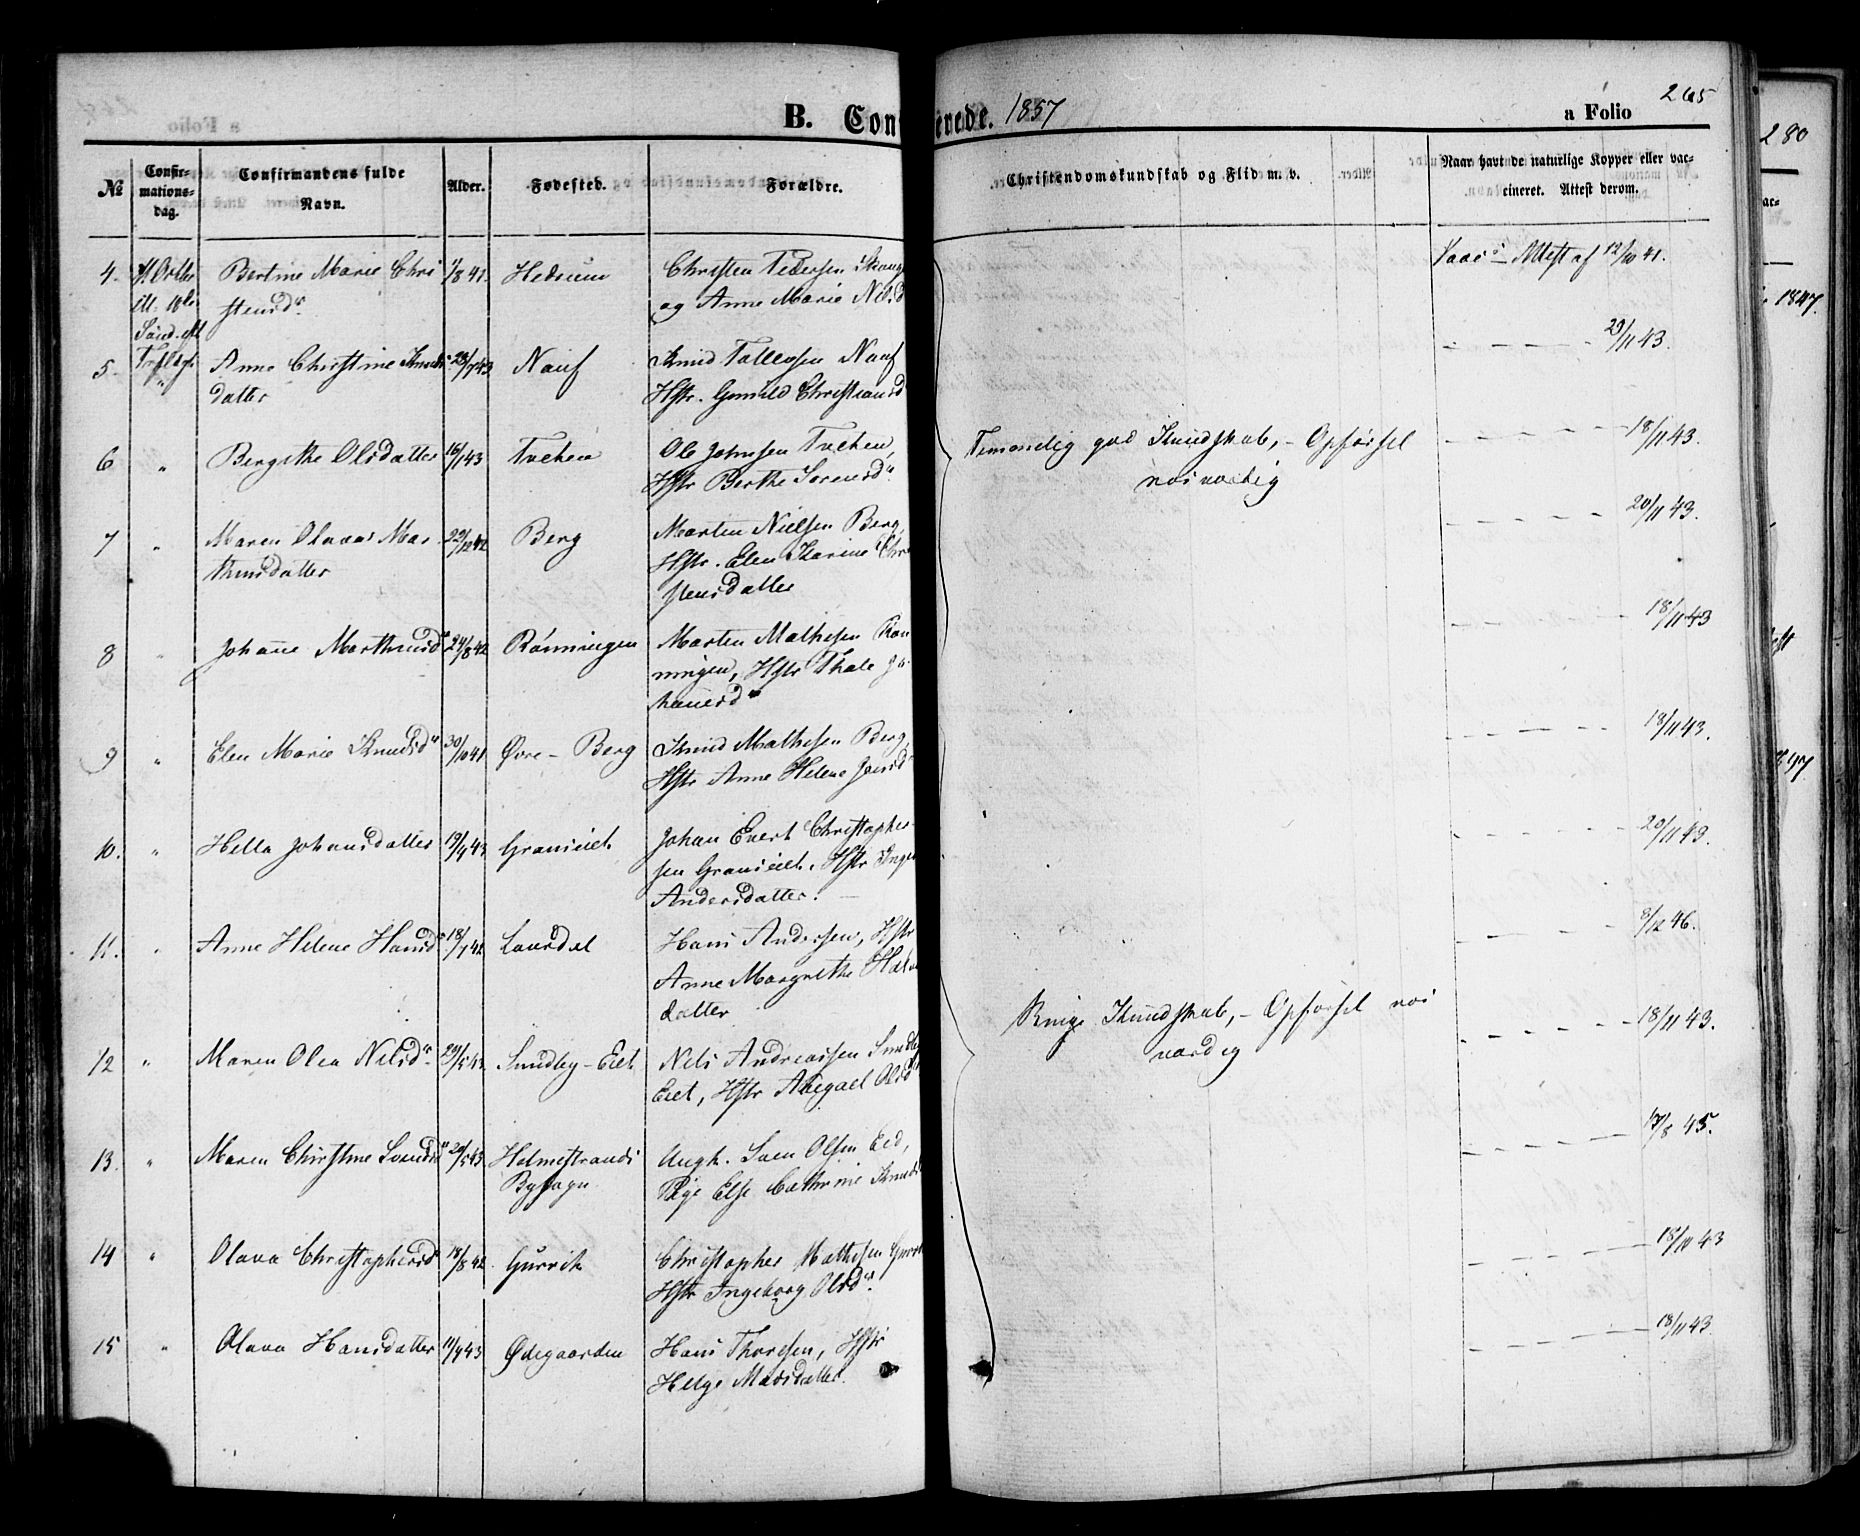 B. Con
evede. 1857
a Folio
265
280
№
Confir-
mations-
dag.
Confirmandens fulde
Navn.
Alder.
Fødested.
Forældre.
Christendomskundskab og Flid m. v.
Naar havt de naturlige Kopper eller vac-
cineret. Attest derom.
4.
Bertine Marie Chri
stensd.
1/8 41
Hedsum
Christen Pedersen
og Anne Marie Nilsd
Attest af 12/10 41.
5.
Anne Christine Knuds
datter
23/7 43
Nauf
Knud Tollevsen Nauf
Hstr. Gunild Christiansd
29/11 43.
6
Bergithe Olsdatter
16/1 43
Tveten
Ole Johnsen Tveten,
Hstr Berthe Sørensd.
Temmelig god Kundskab, - Opførsel
18/11 43.
7
Maren Olava Mar
thinsdatter
22/12 42
Berg
Marten Nielsen Berg
Hstr. Elen Karine Chri
stensdatter
20/11 43.
8
Johanne Marthinsd
24/8 42
Rønningen
Marten Mathisen Røn
ningen, Hstr Thale Jo
hanesd
18/11 43
9
Elen Marie Knudsd
30/10 41
Øvre - Berg
Knud Mathisen Berg,
Hstr Anne Helene Jensd
18/11 43.
10.
Hella Johansdatter
19/4 43
Granseiet
Johan Evert Christopher-
sen Granseiet. Hstr Inge
Andersdatter.
20/11 43.
11.
Anne Helene Hansd
18/7 42
Laurdal
Hans Andersen, Hstr
Anne Margrethe Hal
datter
8/12 46.
12
Maren Olea Nilsd.
29/5 43
Smidley-Eiet
Nils Andreassen Smidley
Eiet, Hstr Abigael Olsd
Ringe Kundskab, - Opførsel
værdig
18/11 43.
13.
Maren Christine Svendsd
20/5 43
Holmestrands
Bysogn
Ungk. Sven Olsen Eid,
Pige Else Cathrine Knudsd
17/8 45.
14
Olava Christophersd
18/8 42
Gurrik
Christopher Mathisen Gurr
Hstr Ingeborg Olsd.
18/10 43
15
Olava Hansdatter
11/4 43
Ødegaarden
Hans Thoresen, Hstr
Helge Madsdatter.
18/11 43.